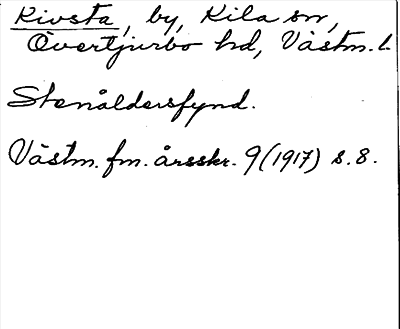 Kivsta, by, Kila sn,
Övertjurbo hd, Västm. l.
Stenåldersfynd.
Västm. fm. årsskr. 9 (1917) s. 8.